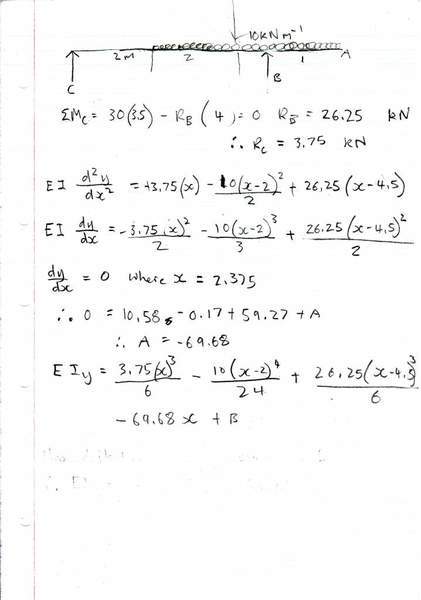 10kNm⁻¹
2M 2 1 A
C B
ΣM_C = 30(3.5) - R_B (4) = 0 R_B = 26.25 kN
∴ R_C = 3.75 kN
EI d²y/dx² = +3.75(x) - 10(x-2)²/2 + 26,25(x-4,5)
EI dy/dx = -3.75(x)²/2 - 10(x-2)³/3 + 26.25(x-4,5)²/2
dy/dx = 0 where x = 2.375
∴ 0 = 10.58 - 0.17 + 59.27 + A
∴ A = -69.68
EIy = 3.75(x)³/6 - 10(x-2)⁴/24 + 26,25(x-4.5)³/6
- 69.68x + B